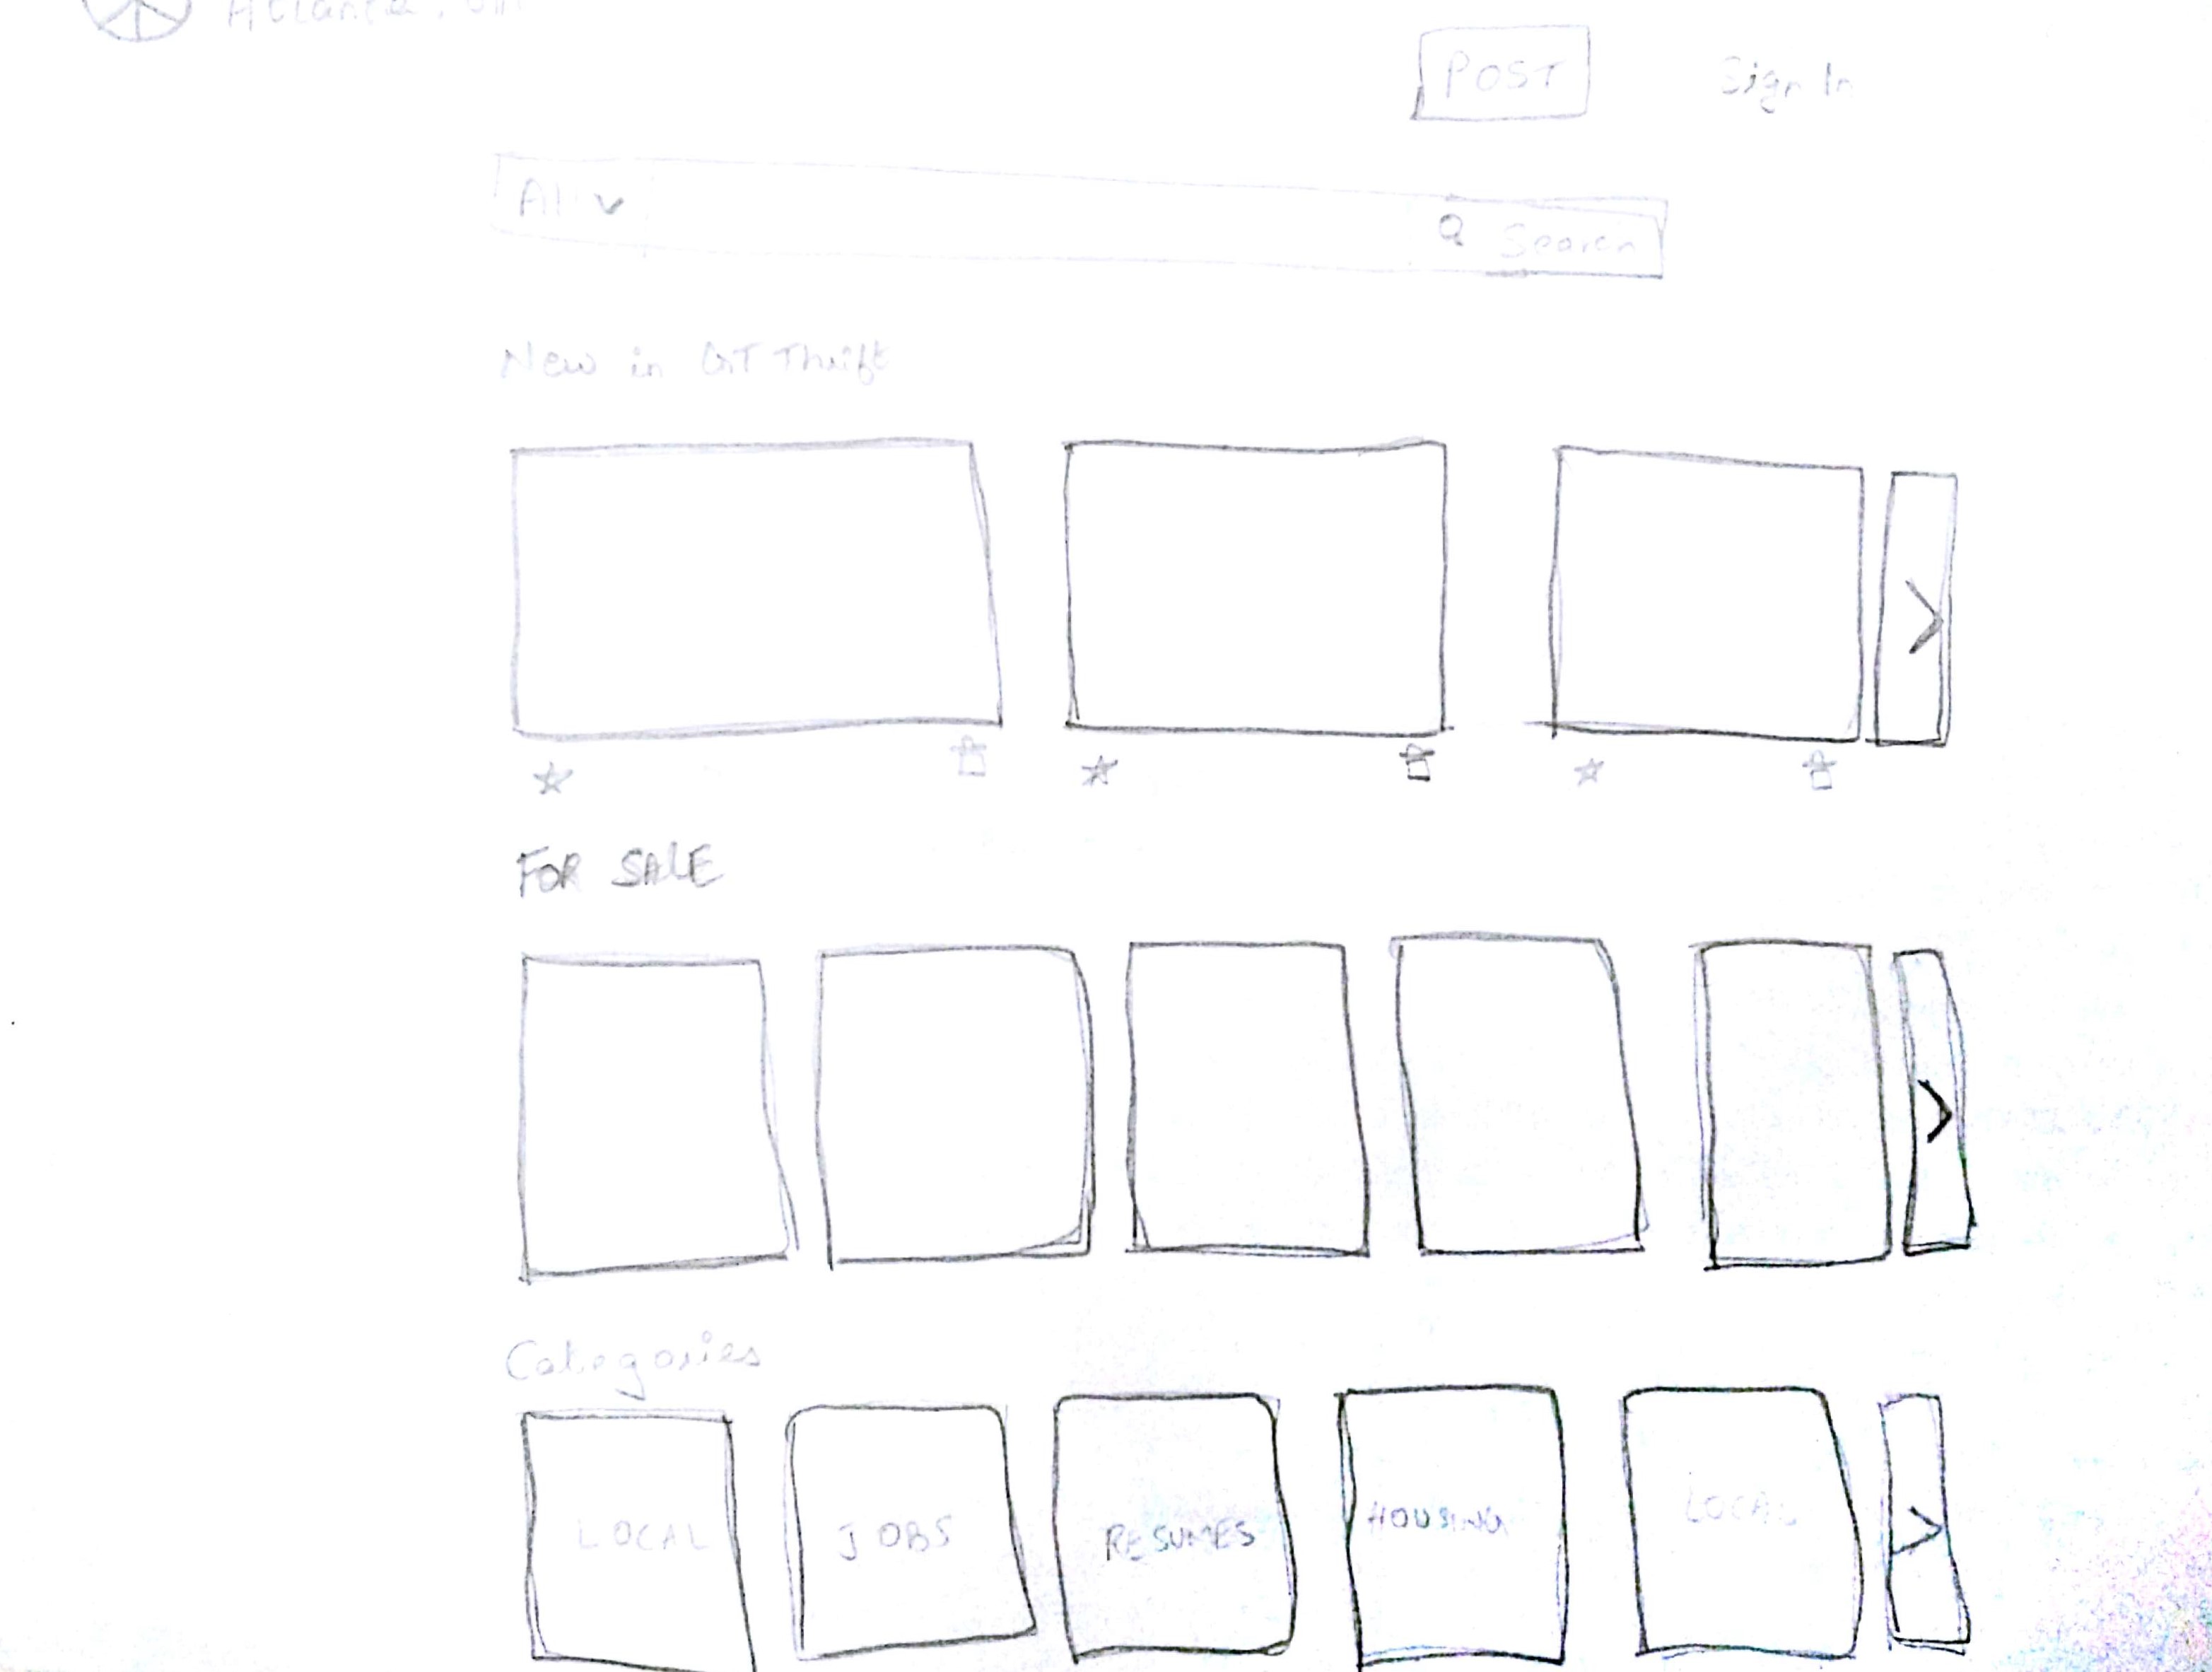 Atlanta,
POST
Sign In
All
Search
New in GT Thrift
FOR SALE
Categories
LOCAL JOBS RESUMES HOUSING LOCAL